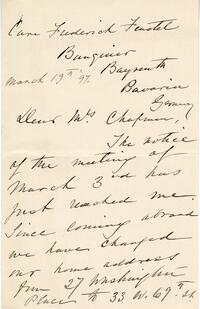 Care Frederick Feustel
Banquier
Bayreuth
Bavaria
Germany
March 19th '97.
Dear Mrs Chapman,
The notice
of the meeting of
March 3rd has
just reached me.
Since coming abroad
we have changed
our home address
from 27 Washington
Place to 33 W. 69th St.